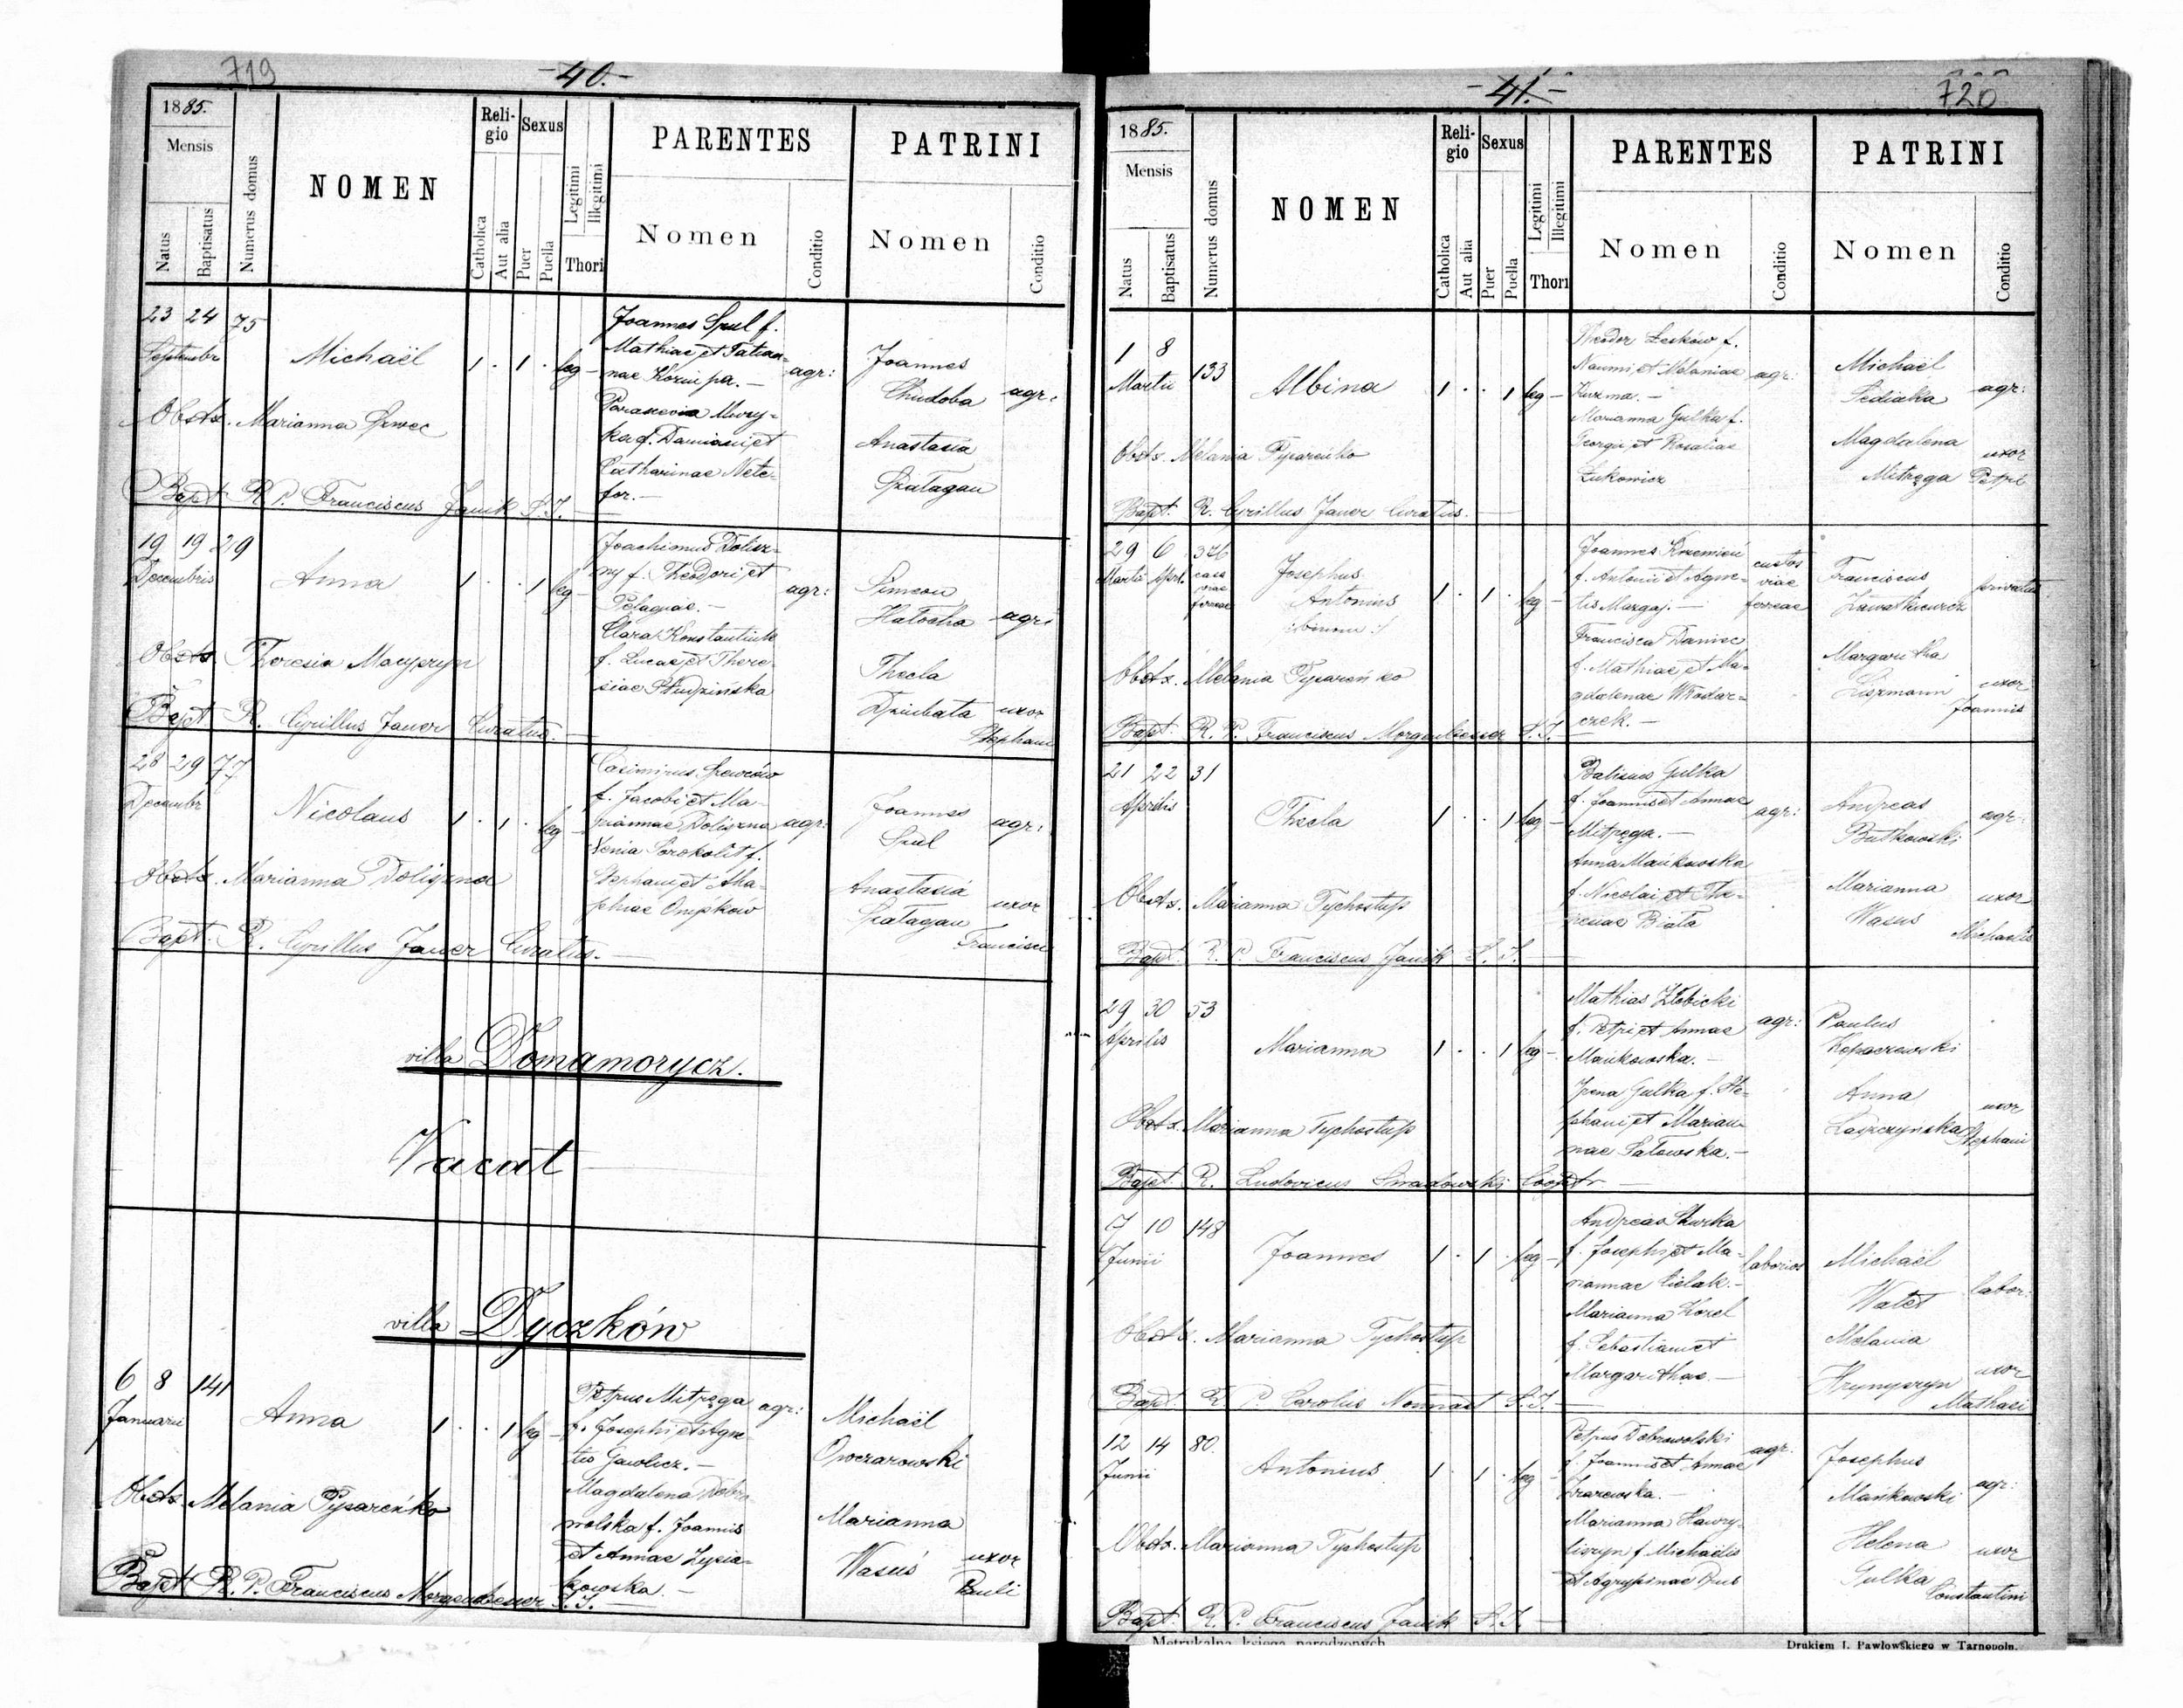 719
-40.-
1885.
Mensis
Natus
Baptisatus
Numerus domus
NOMEN
Reli-
gio
Catholica
Aut alia
Sexus
Puer
Puella
Legitimi
Illegitimi
Thori
PARENTES
Nomen
Conditio
PATRINI
Nomen
Conditio
23 24 75
Septembr
Michaël
1 . 1 . leg -
Joannes Spul f.
Mathiae et Tatian-
nae
agr:
Damiani et
Catharinae
Joannes
Chudoba agr:
Anastasia
Szatagan
Obstx. Marianna Szwec
Bapt. R. P. Franciscus Janik S.I.
19 19 29
Decembris
Anna
1 . . 1 leg -
Joachimus Dolisz-
ny f. Theodori et
Pelagiae. -
agr:
Clara Konstantiuk
f. Lucae et There-
siae Studzińska
Simeon
Hatocha agr:
Thecla
Dziubata uxor
Stephani
Obstx. Theresia
Bapt. R. Cyrillus Jauer Curatus.
28 29 77
Decembr
Nicolaus
1 . 1 . leg -
Casimirus Szewców
f. Jacobi et Ma-
riannae Doliszna agr:
Xenia Sorokolit f.
Stephani et Aha-
phiae Onyśków
Joannes
Spul
agr:
Anastasia
Szatagan
uxor
Francisci
Obstx. Marianna Doliszna
Bapt. R. Cyrillus Jauer Curatus. -
villa Domamorycz.
Vacat
villa Dyczków
6 8 141
Januarii
Anna
1 . . 1 leg -
Petrus Mitręga agr:
f. Josephi et Agne-
tis Gawlicz. -
Magdalena Dobro-
wolska f. Joannis
et Annae Łysia-
kowska. -
Michaël
Owczarowski
Marianna
Wasuś
uxor
Pauli
Obstx. Melania Pysareńko
Bapt. R. P. Franciscus Morgenbesser S.I.
-41.-
720
1885.
Mensis
Natus
Baptisatus
Numerus domus
NOMEN
Reli-
gio
Catholica
Aut alia
Sexus
Puer
Puella
Legitimi
Illegitimi
Thori
PARENTES
Nomen
Conditio
PATRINI
Nomen
Conditio
1 8
Martii 133
Albina
1 . . 1 leg -
Theodor Leśków f.
Naumi et Melaniae agr:
Kuzma. -
Marianna Gulka f.
Georgii et Rosaliae
Łukowicz
Michaël
Fediaka
agr:
Magdalena
Mitręga
uxor
Petri
Obstx. Melania Pysareńko
Bapt. R. Cyrillus Jauer Curatus.
29 6 376
Martii April. casa
viae
ferreae
Josephus
Antonius
/:binom:/
1 . 1 . leg -
Joannes Krzemień
f. Antonii et Agne-
tis Margaj. -
custos
viae
ferreae
Francisca Daniec
f. Mathiae et Ma-
gdalenae Włodar-
czek. -
Franciscus
Zawałkiewicz
privatus
Margaritha
Liszmann
uxor
Joannis
Obstx. Melania Pysareńko
Bapt. R. P. Franciscus Morgenbesser S.I.
21 22 31
Aprilis
Thecla
1 . . 1 leg -
Gulka
f. Joannis et Annae agr:
Mitręga. -
Anna Mańkowska
f. Nicolai et
Biała
Andreas
Butkowski
agr:
Marianna
Wasus
uxor
Michaelis
Obstx. Marianna Tychostup
Bapt. R. P. Franciscus Janik S. I.
29 30 53
Aprilis
Marianna
1 . . 1 leg -
Mathias Złobicki
f. Petri et Annae agr:
Mańkowska. -
Irena Gulka f. Ste-
phani et Marian-
nae Sałowska. -
Paulus
Kopaczewski
Anna
Łaszczyńska
uxor
Stephani
Obstx. Marianna Tychostup
Bapt. R. Ludovicus Smadowski Cooptr
7 10 148
Junii
Joannes
1 . 1 . leg -
Andreas
f. Josephi et Ma-
riannae Cielak. -
laborios
Marianna Korol
f. Sebastiani et
Margarithae. -
Michaël
Watet
labor:
Melania
Hrynyszyn
uxor
Mathaei
Obstx. Marianna Tychostup
Bapt. R. P. Carolus Nonnast S.I.
12 14 80.
Junii
Antonius
1 . 1 . leg
Petrus Dobrowolski
f. Joannis et Annae
agr.
Marianna Hawry-
liszyn f. Michaëlis
et Agrypinae Dub
Josephus
Mańkowski
agr:
Helena
Gulka
uxor
Constantini
Obstx. Marianna Tychostup
Bapt. R. P. Franciscus Janik S.I.
Metrykalna księga narodzonych
Drukiem J. Pawłowskiego w Tarnopolu.